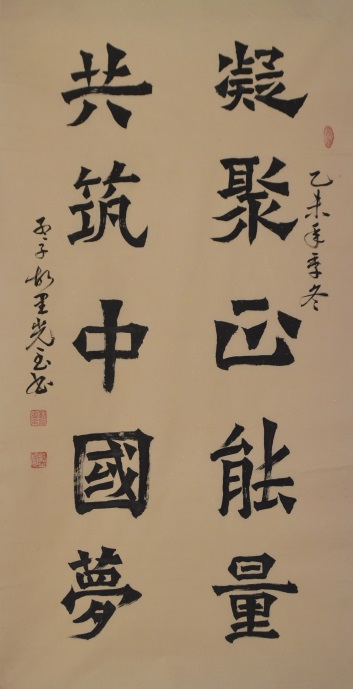 乙未年季冬
凝聚正能量
共筑中國夢
孙子故里光玉书